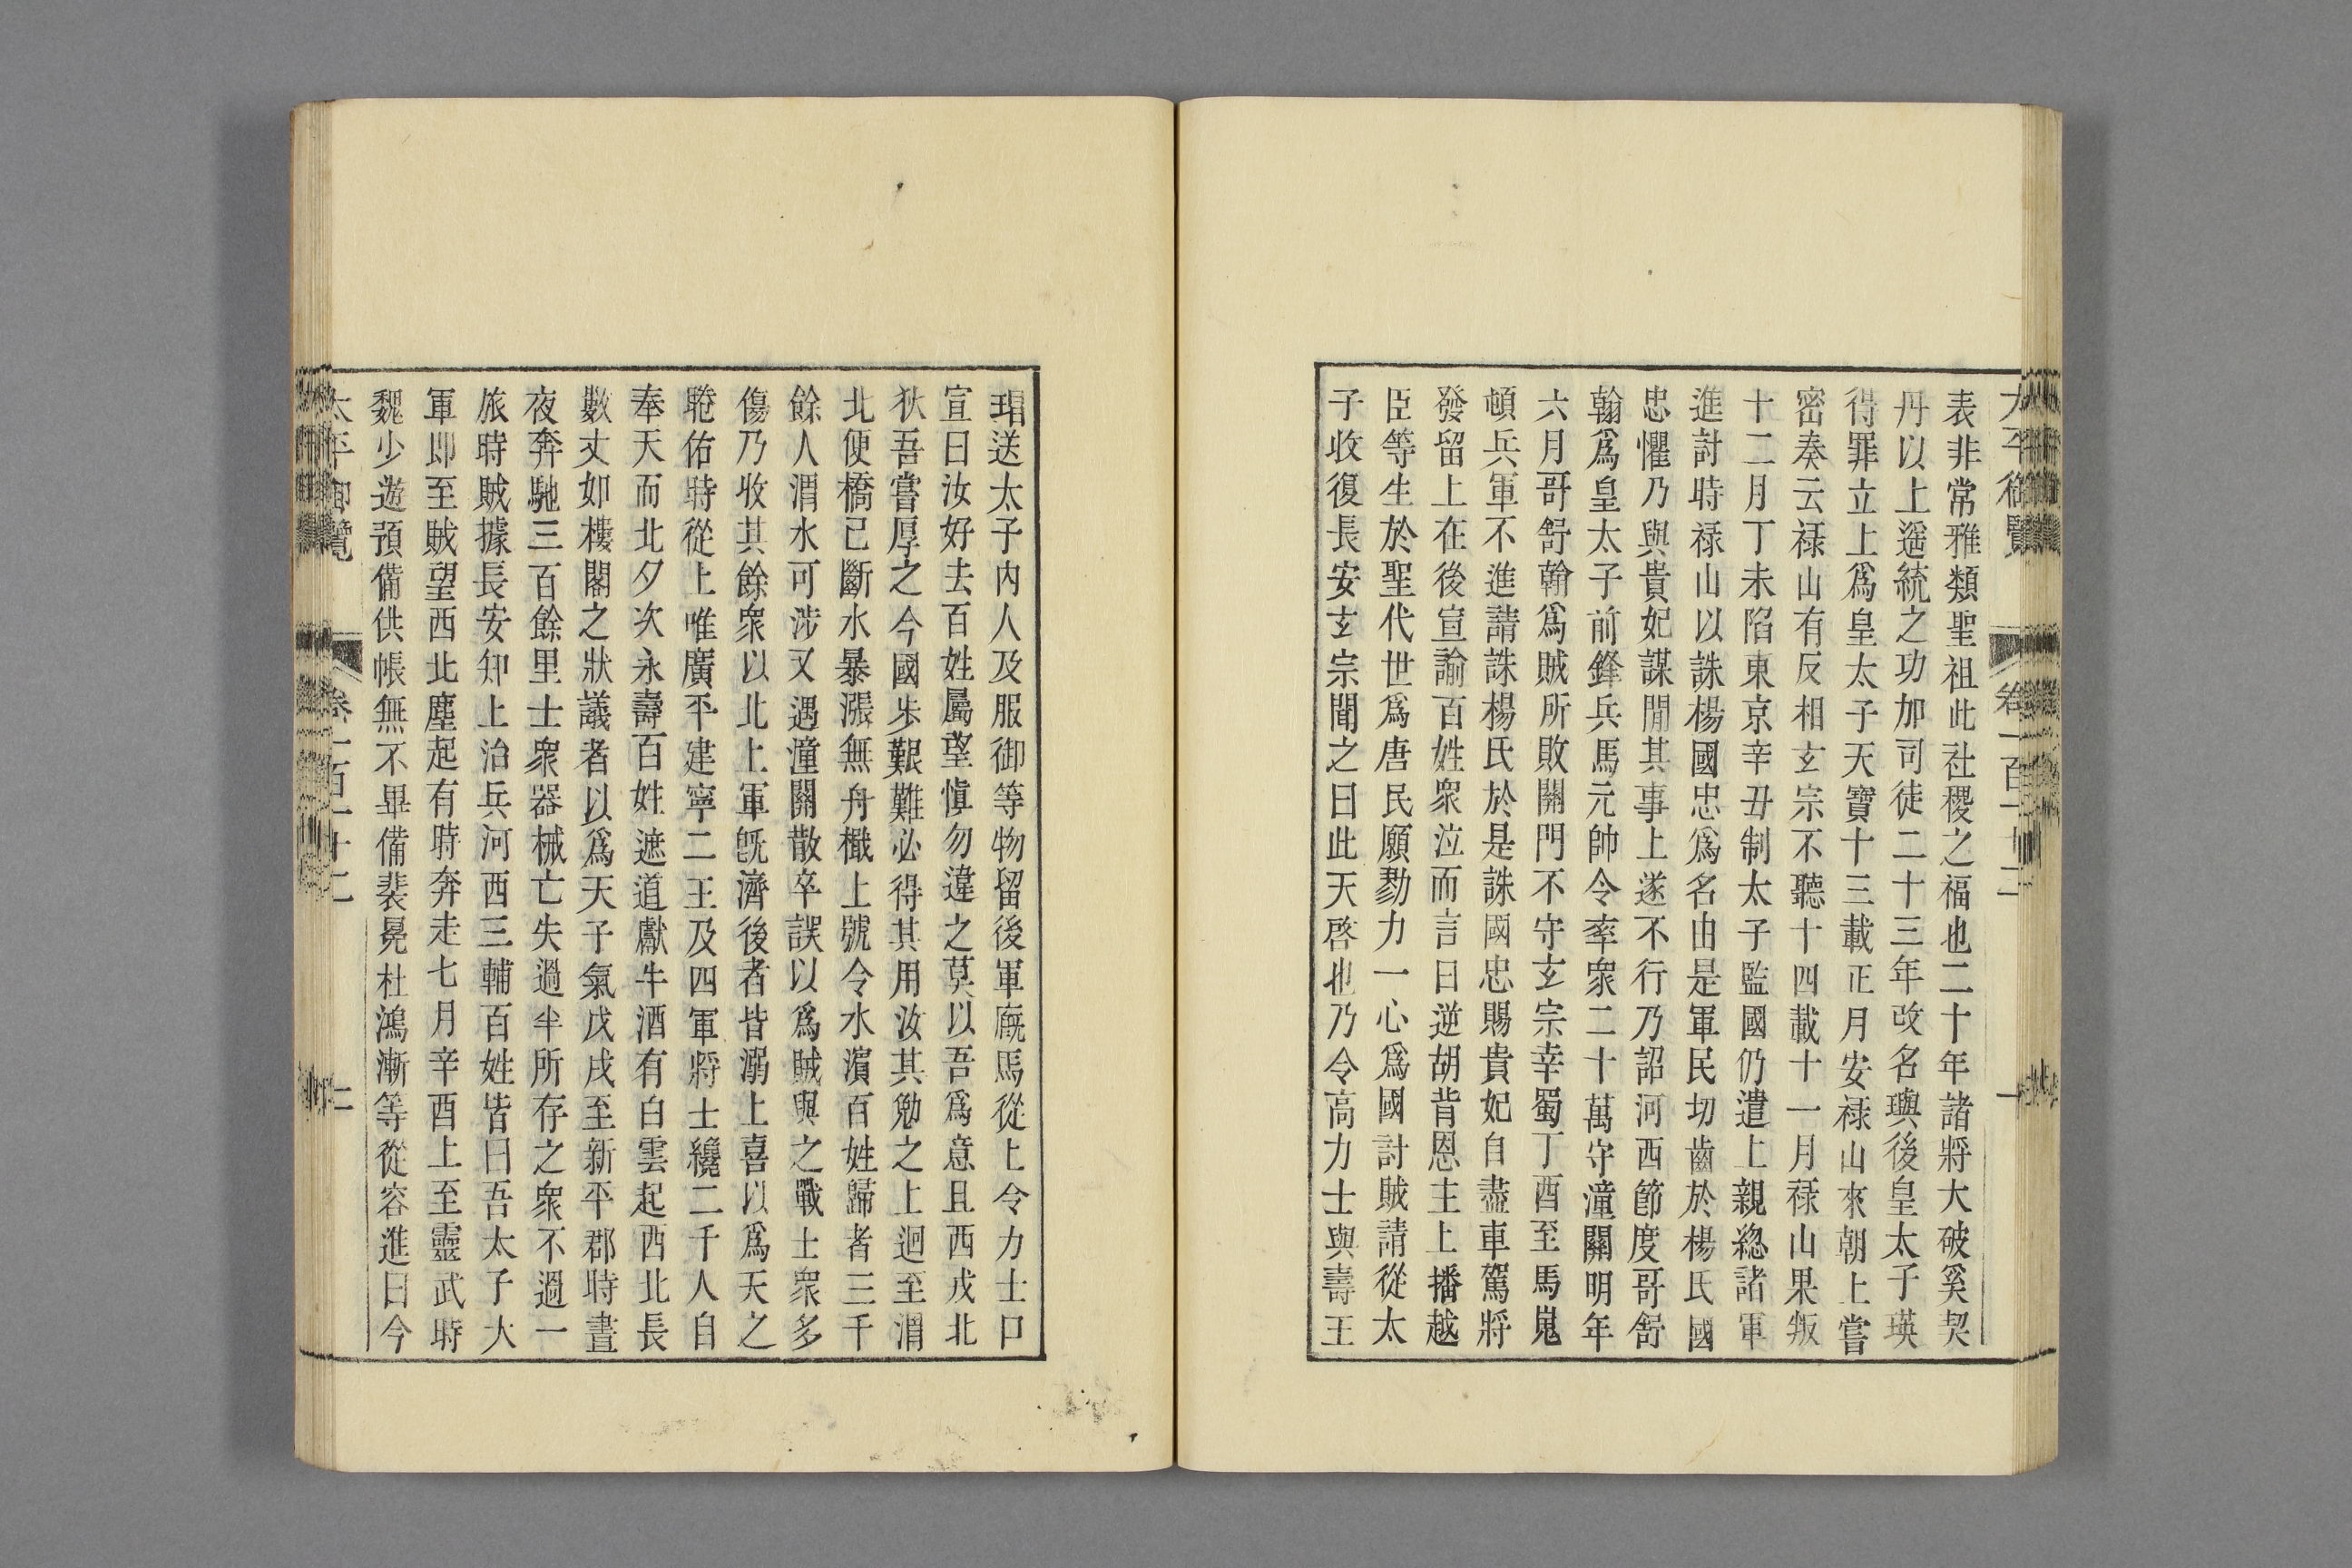 太平御覽 卷一百一十二 一
表非常雅類聖祖此社稷之福也二十年諸將大破奚契
丹以上遥統之功加司徒二十三年改名璵後皇太子瑛
得罪立上爲皇太子天寶十三載正月安祿山來朝上嘗
密奏云祿山有反相玄宗不聽十四載十一月祿山果叛
十二月丁未陷東京辛丑制太子監國仍遣上親緫諸軍
進討時祿山以誅楊國忠爲名由是軍民切齒於楊氏國
忠懼乃與貴妃謀閒其事上遂不行乃詔河西節度哥舒
翰爲皇太子前鋒兵馬元帥令率衆二十萬守潼關明年
六月哥舒翰爲賊所敗關門不守玄宗幸蜀丁酉至馬嵬
頓兵軍不進請誅楊氏於是誅國忠賜貴妃自盡車駕將
發留上在後宣諭百姓衆泣而言曰逆胡背恩主上播越
臣等生於聖代世爲唐民願勠力一心爲國討賊請從太
子收復長安玄宗聞之曰此天啓也乃令高力士與壽王
瑁送太子内人及服御等物留後軍廄馬從上令力士口
宣曰汝好去百姓屬望愼勿違之莫以吾爲意且西戎北
狄吾嘗厚之今國步艱難必得其用汝其勉之上迴至渭
北便橋已斷水暴漲無舟檝上號令水濱百姓歸者三千
餘人渭水可涉又遇潼關散卒誤以爲賊與之戰士衆多
傷乃收其餘衆以北上軍旣濟後者皆溺上喜以爲天之
聦佑時從上唯廣平建寧二王及四軍將士纔二千人自
奉天而北夕次永壽百姓遮道獻牛酒有白雲起西北長
數丈如樓閣之狀議者以爲天子氣戊戌至新平郡時晝
夜奔馳三百餘里士衆器械亡失過半所存之衆不過一
旅時賊據長安知上治兵河西三輔百姓皆曰吾太子大
軍即至賊望西北塵起有時奔走七月辛酉上至靈武時
魏少遊預備供帳無不畢備裴冕杜鴻漸等從容進曰今
太平御覽 卷一百一十二 二